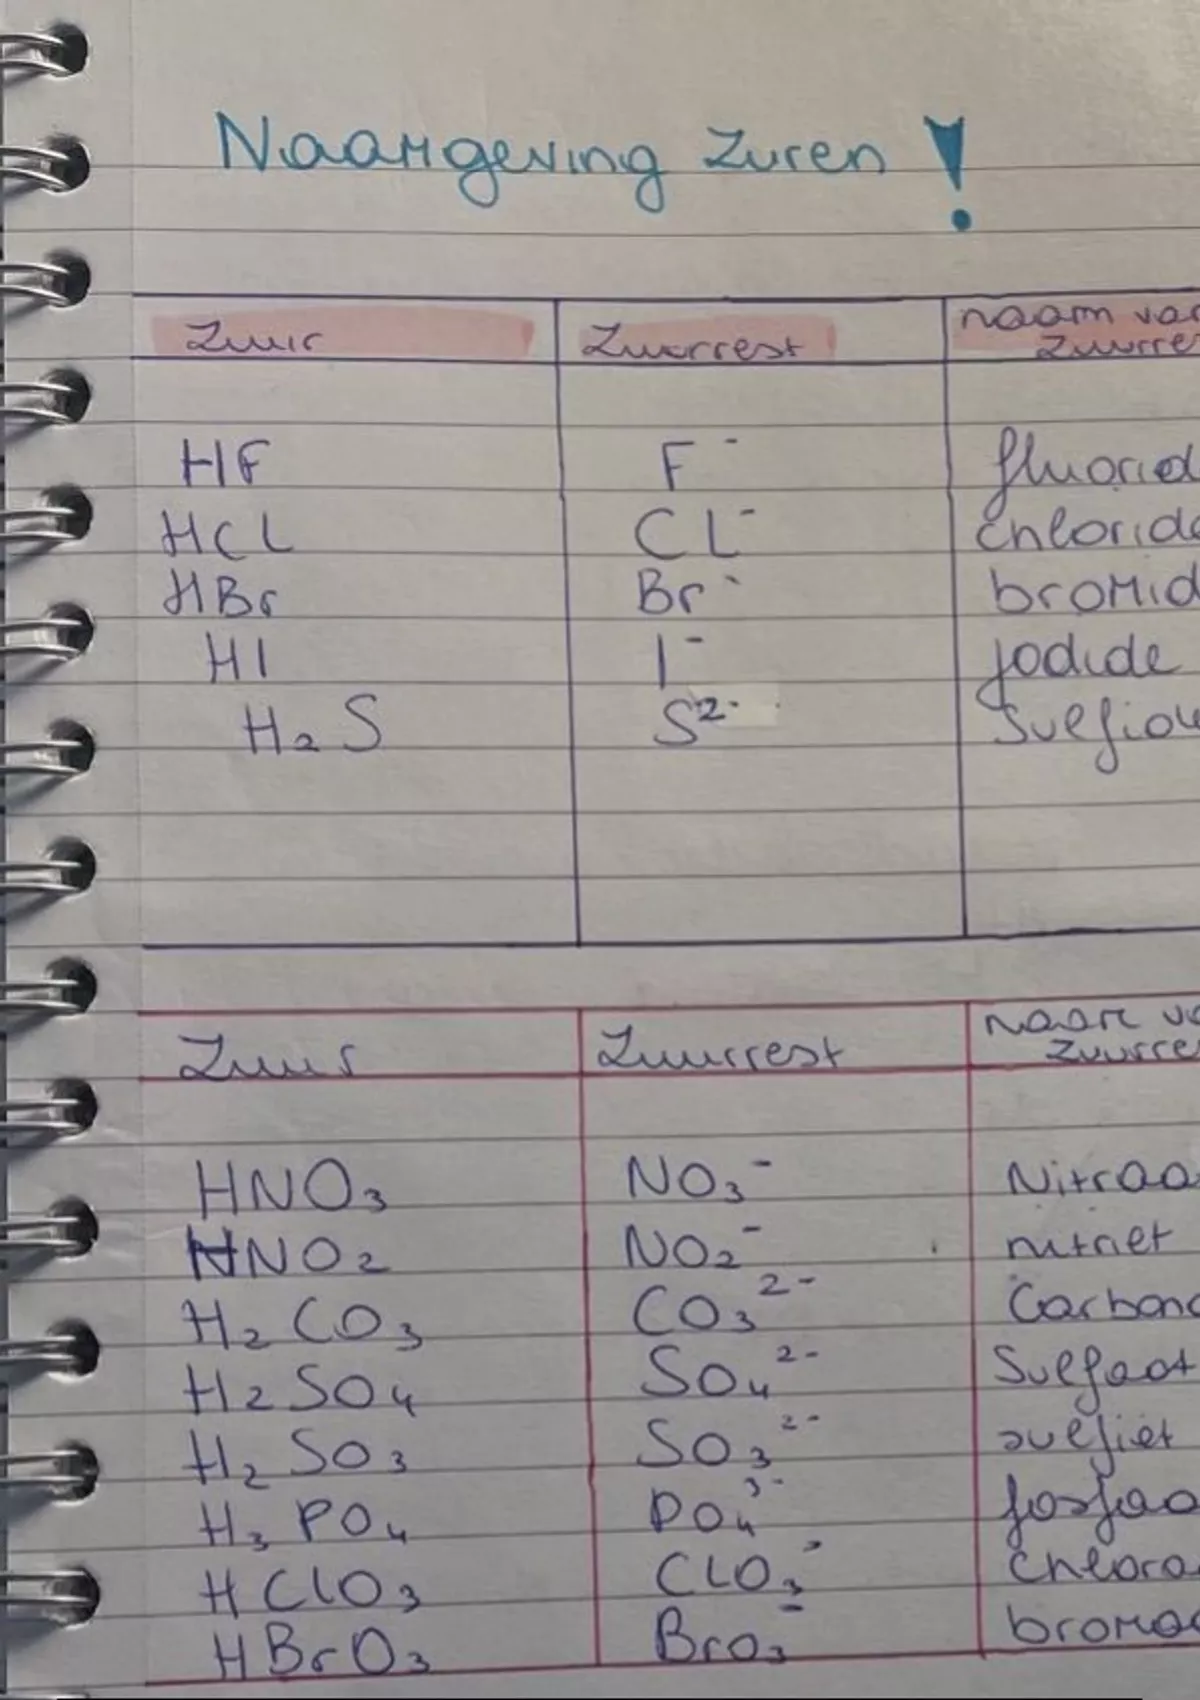 Naamgeving Zuren !
Zuur Zuurrest naam van
Zuurre
HF F⁻ fluorid
HCl Cl⁻ chloride
HBr Br⁻ bromid
HI I⁻ jodide
H₂S S²⁻ Sulfide
Zuur Zuurrest naam va
Zuurre
HNO₃ NO₃⁻ Nitraa
HNO₂ NO₂⁻ nitriet
H₂CO₃ CO₃²⁻ Carbona
H₂SO₄ SO₄²⁻ Sulfaat
H₂SO₃ SO₃²⁻ sulfiet
H₃PO₄ PO₄³⁻ fosfaa
HClO₃ ClO₃⁻ Chlora
HBrO₃ BrO₃⁻ bromaa